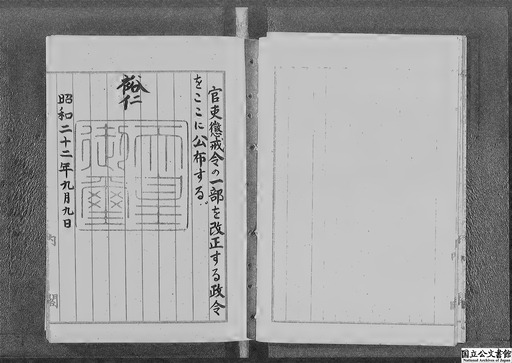 官吏懲戒令の一部を改正する政令
をここに公布する。
裕仁
天皇
御璽
昭和二十二年九月九日
内閣
国立公文書館
National Archives of Japan